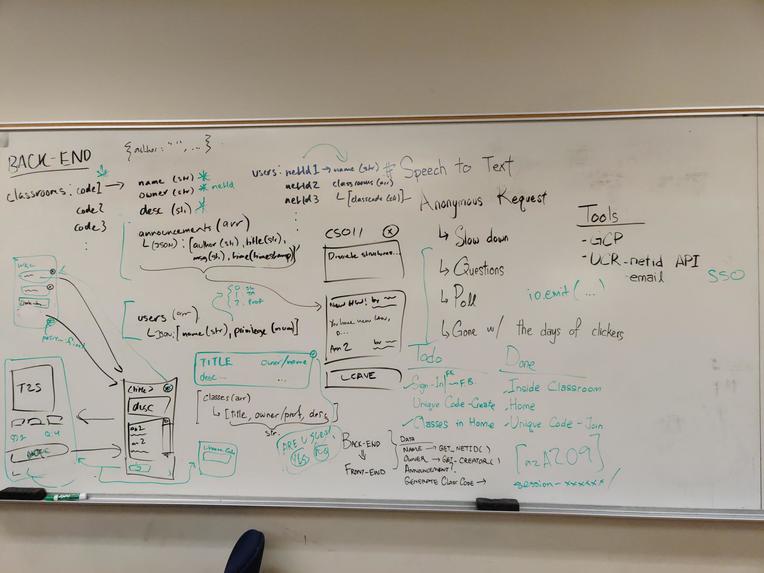 BACK-END
{author: "", ...}
classrooms: code1 → name (str)
owner (str) netid
desc (str)
code2
code3
announcements (arr)
↳ (JSON): [author (str), title (str),
msg (str), time (timestamp)]
users (arr)
↳ JSON: [name (str), privilege (num)]
0 St
1 TA
2 Prof
users: netId1 → name (str)
netId2 classrooms (arr)
netId3 ↳ [classcode (str)]
# Speech to Text
Anonymous Request
↳ Slow down
↳ Questions
↳ Poll
↳ Gone w/ the days of clickers
io.emit (...)
Tools
- GCP
- UCR-netid API
-email
SSO
CS011
Discrete structures...
New HW! by
Ann 2 by
LEAVE
T2S
<title>
desc
an2
an2
TITLE owner/name
desc... ...
classes (arr)
↳ [title, owner/prof, desc]
str
ARE U SURE?
YES
BACK-END
↓
FRONT-END
DATA
NAME → GET_NETID()
OWNER → GET_CREATOR()
ANNOUNCEMENT
GENERATE Class Code →
Todo
Sign-In FE → FB
Unique Code-Create
Classes in Home
Done
Inside Classroom
Home
Unique Code - Join
[nzA2O9]
session-xxxxxx